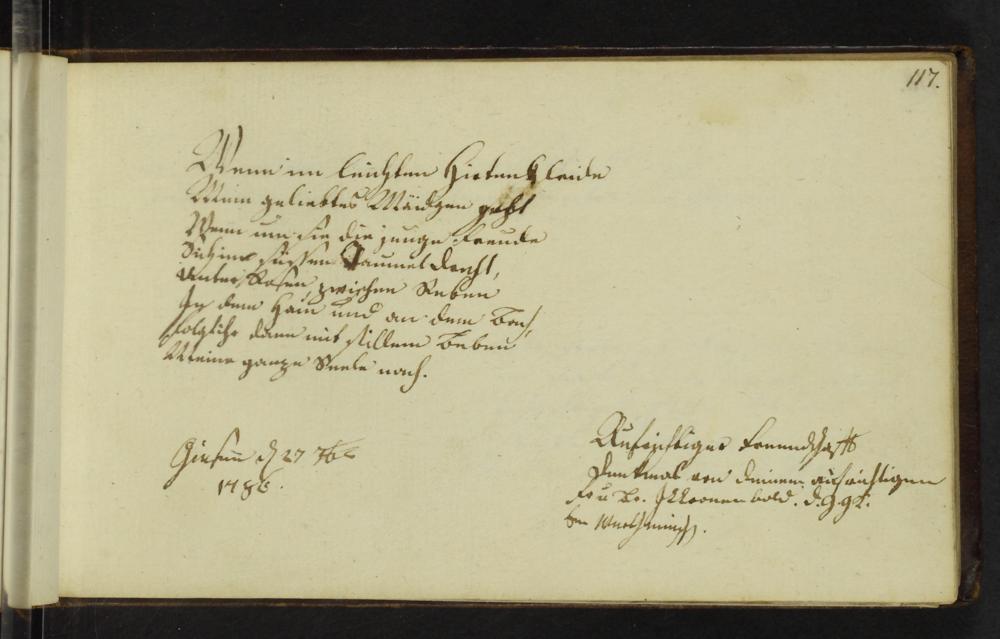 117.
Wenn im leichten Hirtenkleide
Mein geliebtes Mädgen geht
Wenn um sie die junge Freude
Sich im süssen Taumel dreht,
Unter Rosen, zwischen Reben
In dem Hain und an dem Bach,
Folgt ihr dann mit stillem Beben
Meine ganze Seele nach.
Giesen d 27 7br
1786.
Aufrichtiger Freundschafts
Denkmal von deinem aufrichtigen
Fr u Br.